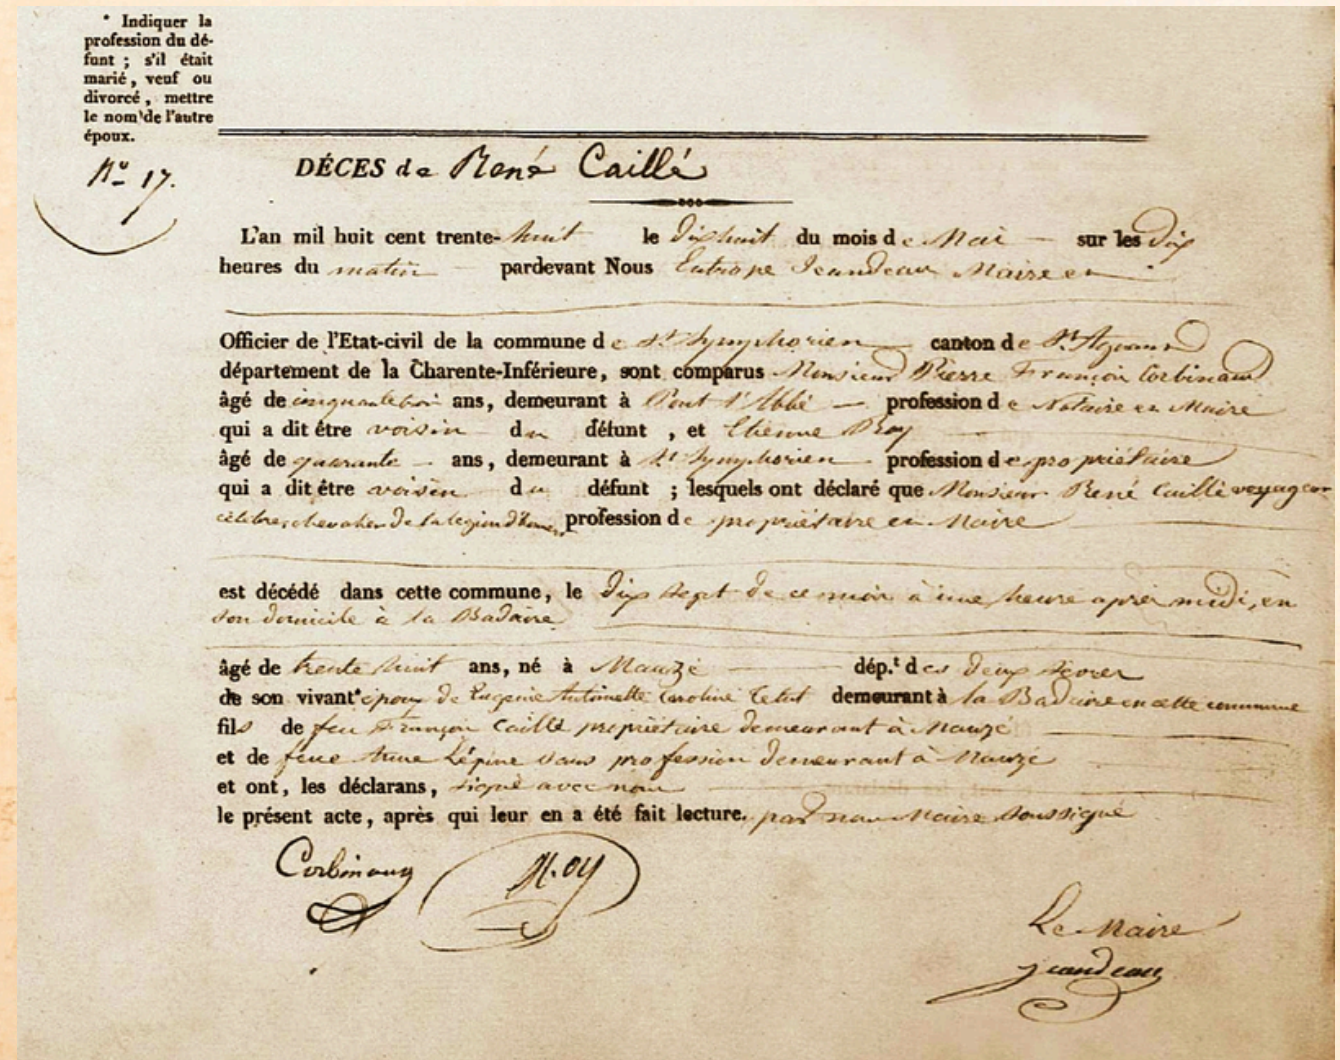 * Indiquer la
profession du dé-
funt ; s'il était
marié, veuf ou
divorcé, mettre
le nom de l'autre
époux.
N° 17.
DÉCES de René Caillé
L'an mil huit cent trente-huit le dix huit du mois de Mai sur les dix
heures du matin pardevant Nous Eutrope Jeandeau Maire en
Officier de l'Etat-civil de la commune de St Symphorien canton de St Agnant
département de la Charente-Inférieure, sont comparus Monsieur Pierre François Corbinaud
âgé de cinquante trois ans, demeurant à Pont l'Abbé profession de Notaire et Maire
qui a dit être voisin du défunt, et Etienne Roy
âgé de quarante ans, demeurant à St Symphorien profession de propriétaire
qui a dit être voisin du défunt ; lesquels ont déclaré que Monsieur René Caillé voyageur
célèbre, chevalier de la legion d'honneur, profession de propriétaire et Maire
est décédé dans cette commune, le dix sept de ce mois à une heure après midi, en
son domicile à la Badaire
âgé de trente huit ans, né à Mauzé dép.t des deux Sèvres
de son vivant* époux de Eugenie Antoinette Caroline Tetut demeurant à la Badaire en cette commune
fils de feu François Caillé propriétaire demeurant à Mauzé
et de feue Anne Lépine sans profession demeurant à Mauzé
et ont, les déclarans, signé avec nous
le présent acte, après qui leur en a été fait lecture. par nous Maire soussigné
Corbinaud Roy
Le Maire
Jeandeau